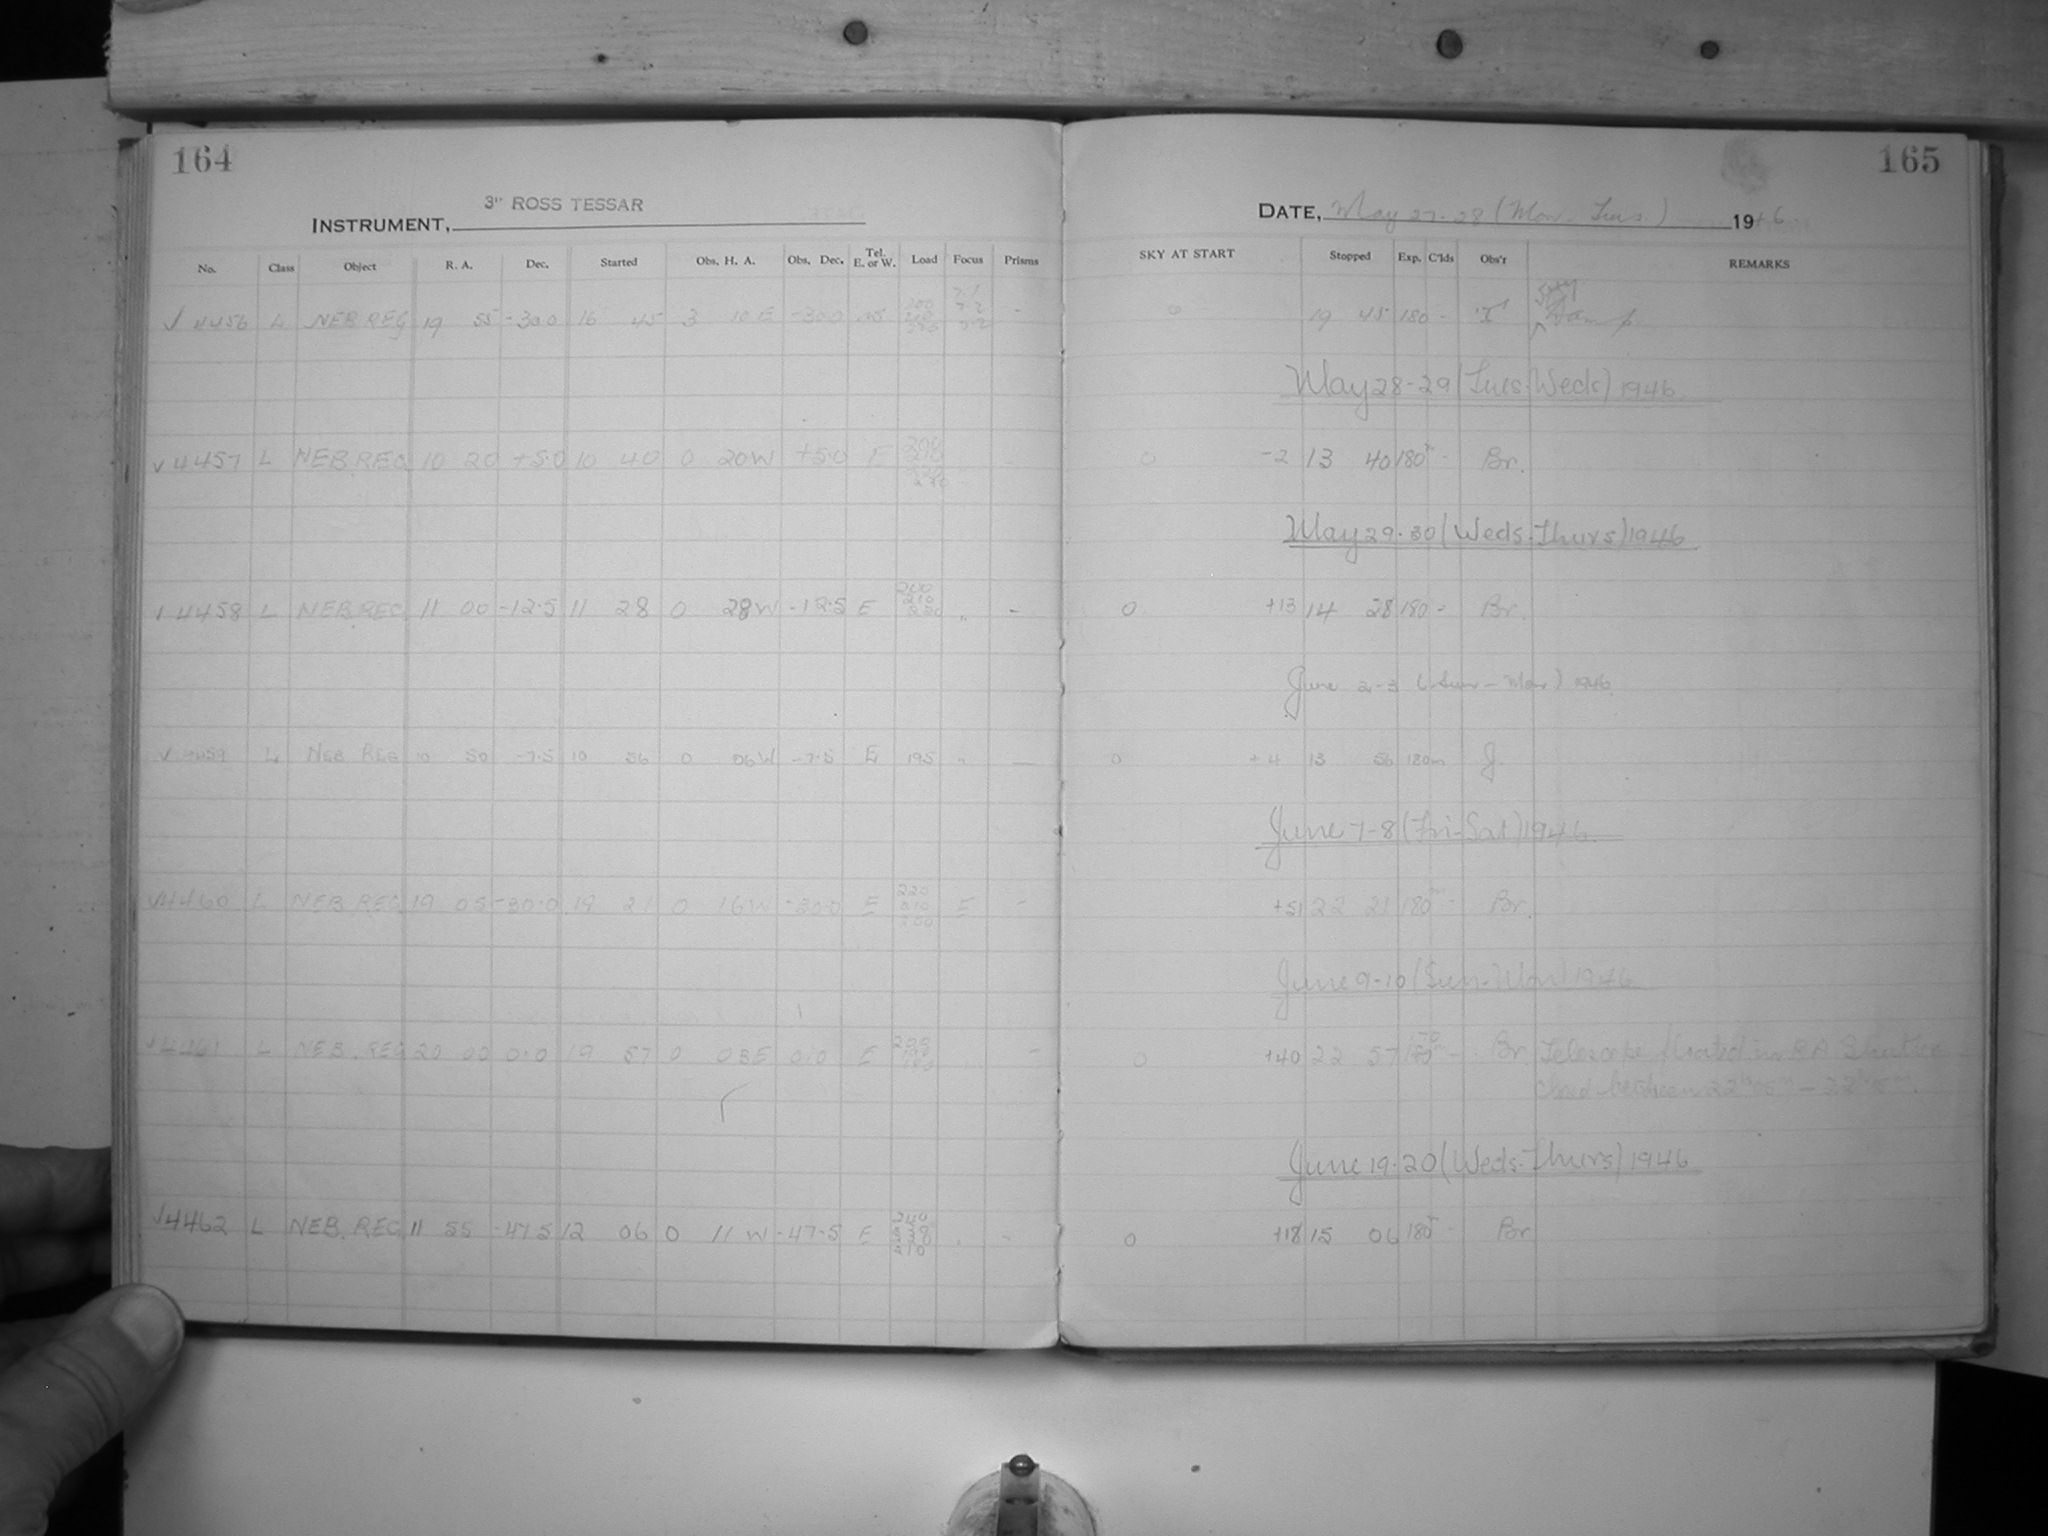 164
165
3" ROSS TESSAR
INSTRUMENT,
DATE, May 27-28 (Mon. Tues.) 1946
No. Class Object R. A. Dec. Started Obs. H. A. Obs. Dec. Tel. E. or W. Load Focus Prisms SKY AT START Stopped Exp. C'lds Obs'r REMARKS
√ 4456 L NEB REG 19 55 -30.0 16 45 3 10 E -30.0 - 0 19 45 180 - Damp
May 28-29 (Tues-Weds) 1946
√ 4457 L NEB. REG 10 20 +5.0 10 40 0 20W +5.0 E 0 -2 13 40 180 - Br.
May 29-30 (Weds-Thurs) 1946
4458 L NEB. REG 11 00 -12.5 11 28 0 28W -12.5 E 200 210 220 " - 0 +13 14 28 180 - Br.
June 2-3 (Sun-Mon) 1946
√ 4459 L NEB REG 10 50 -7.5 10 56 0 06W -7.5 E 195 " — 0 +4 13 56 180m J.
June 7-8 (Fri-Sat) 1946
√4460 L NEB. REG 19 05 -30.0 19 21 0 16W -30.0 E 220 210 200 E - +51 22 21 180m - Br.
June 9-10 (Sun-Mon) 1946
√4461 L NEB. REG 20 00 0.0 19 57 0 03E 0.0 E - 0 +40 22 57 - Br Telescope floated in RA Shutter
closed between 22h 05m - 22h 15m.
June 19-20 (Weds-Thurs) 1946
√4462 L NEB. REG 11 55 -47.5 12 06 0 11 W -47.5 E " - 0 +18 15 06 180 - Br